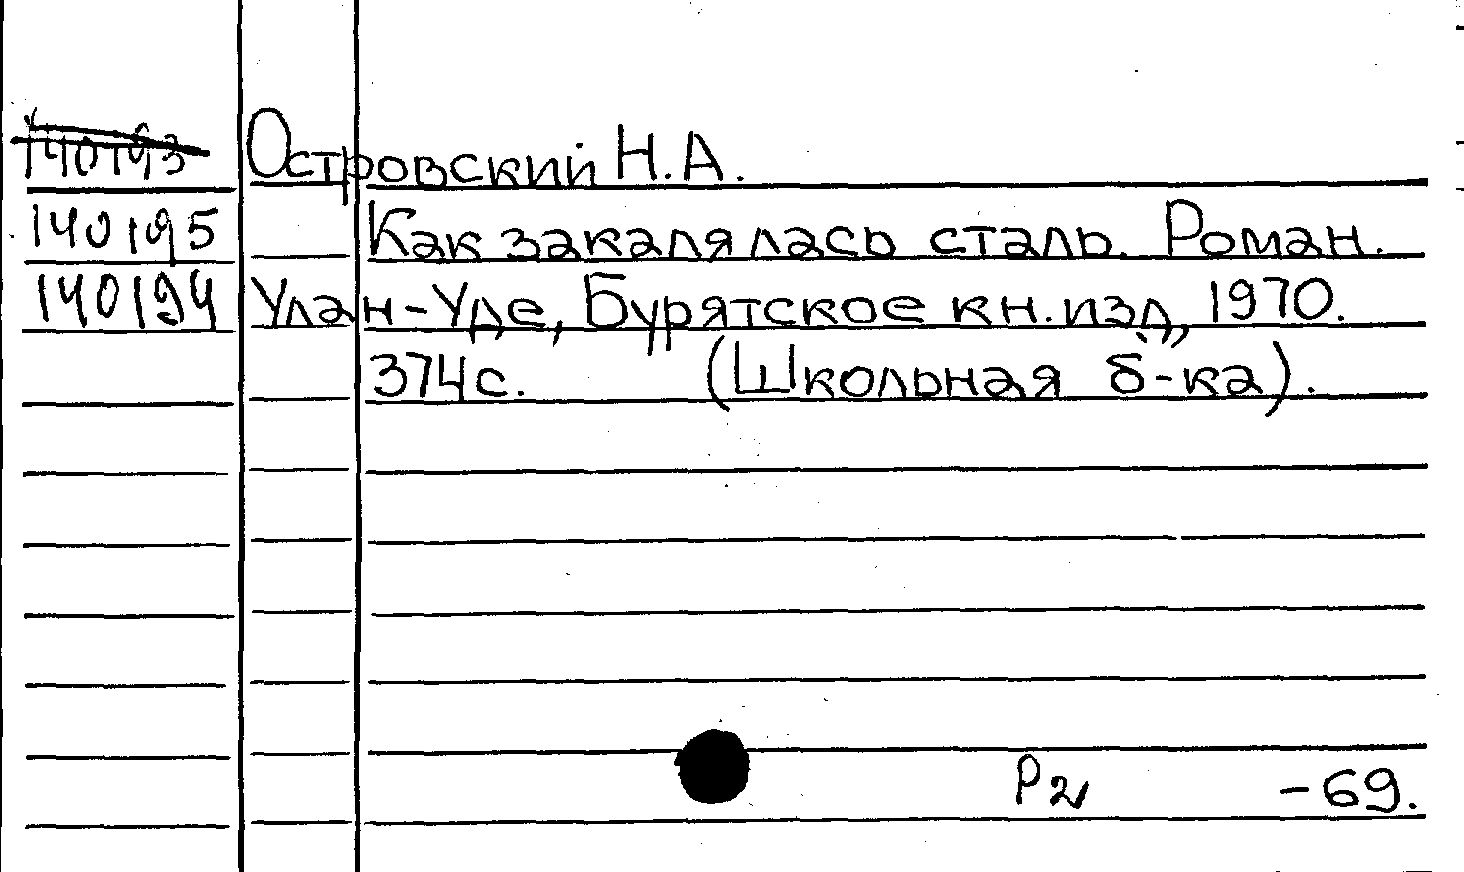 140193 Островский Н.А.
140195 Как закалялась сталь. Роман.
140194 Улан-Уде, Бурятское кн.изд, 1970.
374с. (Школьная б-ка).
Р2 -69.